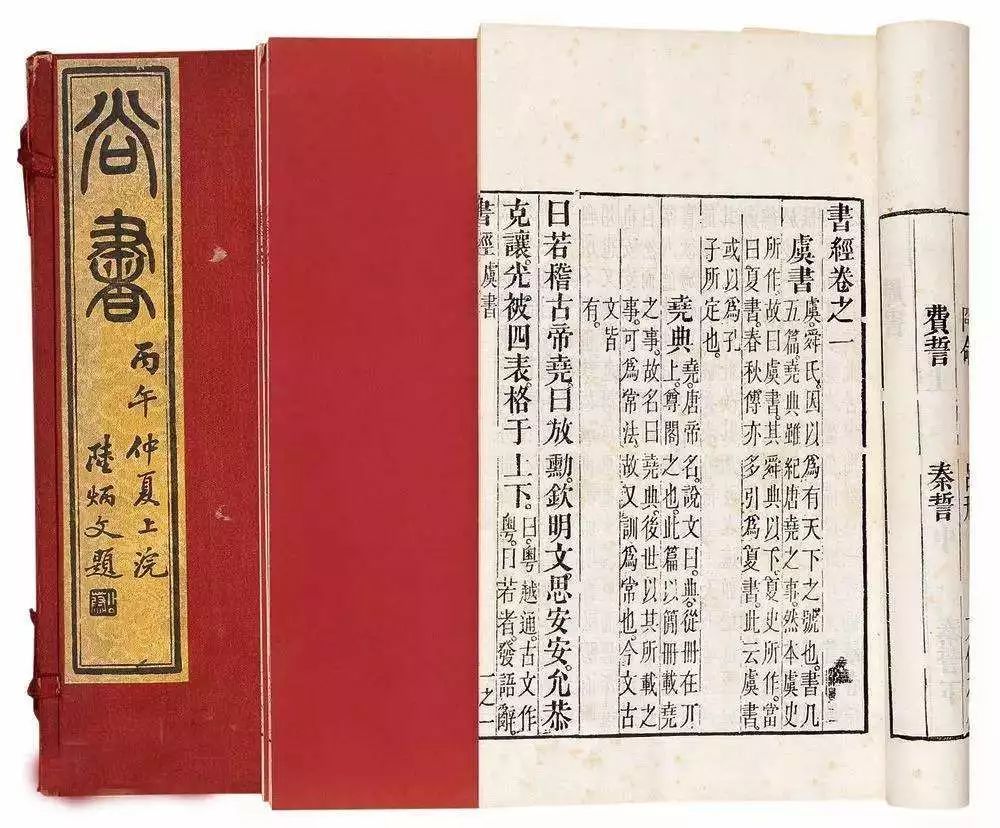 尚書
丙午仲夏上浣
陸炳文題
費誓 秦誓
書經卷之一
虞書
虞。舜氏。因以爲有天下之號也。書凡
五篇。堯典雖紀唐堯之事。然本虞史
所作。故曰虞書。其舜典以下。夏史所作。當
曰夏書。春秋傳亦多引爲夏書。此云虞書。
或以爲孔
子所定也。
堯典
堯。唐帝名。說文曰。典。從冊在丌
上。尊閣之也。此篇以簡冊載堯
之事。故名曰堯典。後世以其所載之
事。可爲常法。故又訓爲常也。今文古
文皆
有。
曰若稽古帝堯曰放勳。欽明文思安安。允恭
克讓。光被四表。格于上下。
曰。粵越通。古文作
粵。曰若者。發語辭。
書經 虞書 一之一